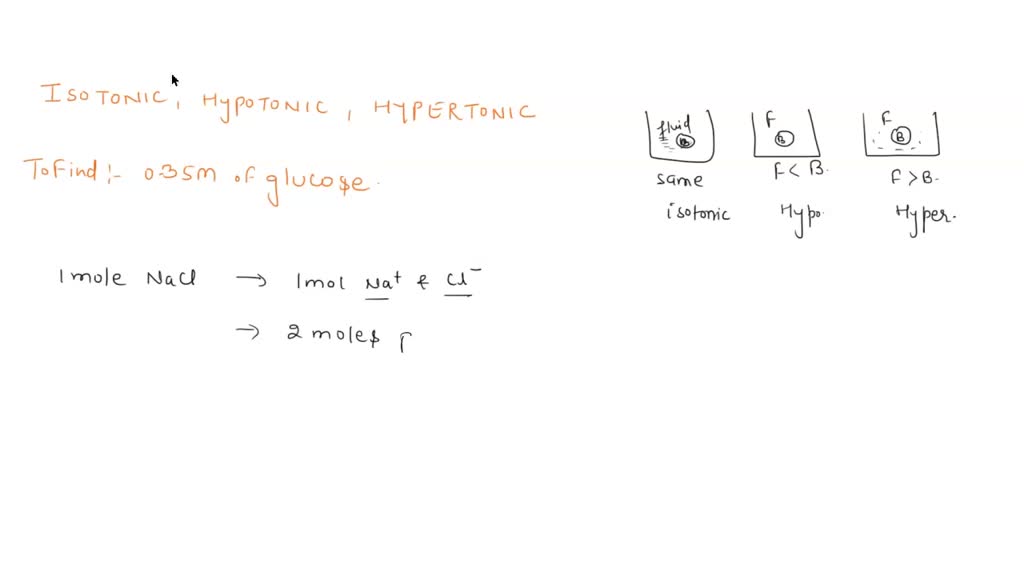 ISOTONIC, HYPOTONIC, HYPERTONIC
To Find :- 0.35M of glucose.
1 mole NaCl → 1mol Na⁺ & Cl⁻
→ 2 moles
fluid B
same
isotonic
F B
F < B.
Hypo.
F B
F > B.
Hyper.